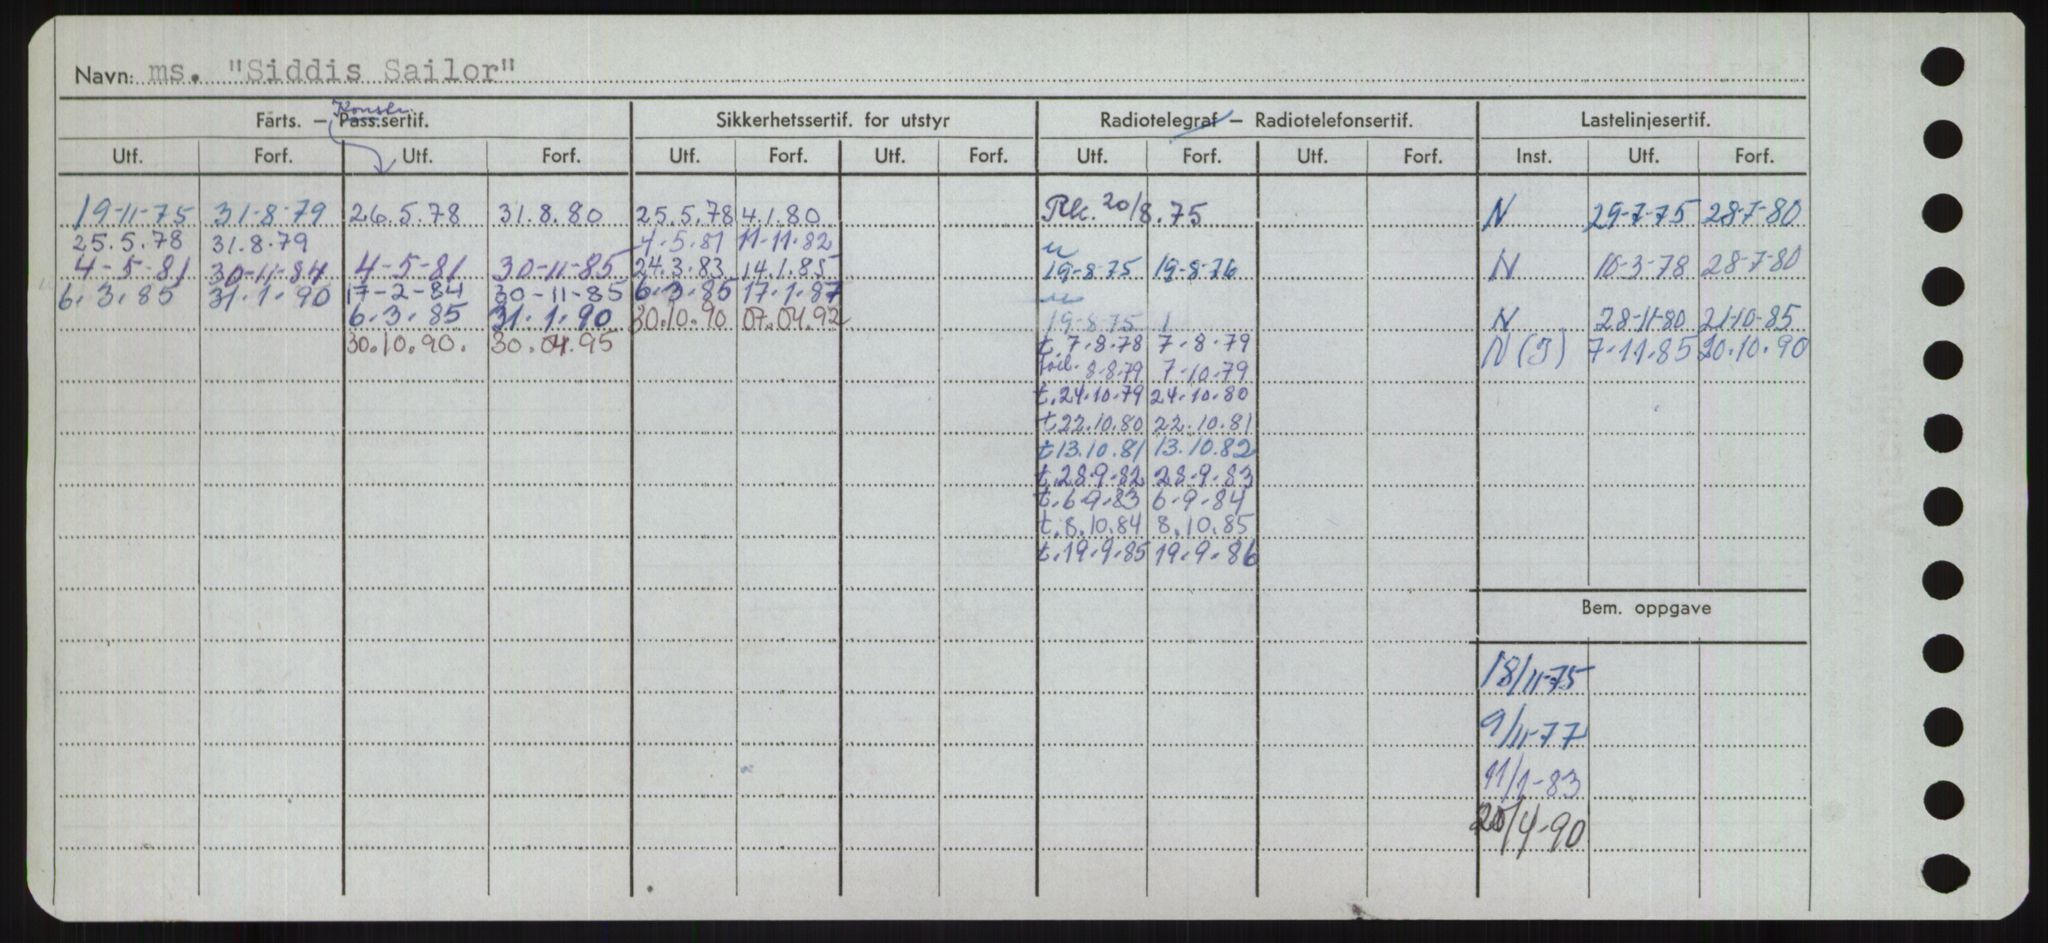 Navn: ms. "Siddis Sailor"
Konstr.
Farts. — Pass.sertif. Sikkerhetssertif. for utstyr Radiotelegraf — Radiotelefonsertif. Lastelinjesertif.
Utf. Forf. Utf. Forf. Utf. Forf. Utf. Forf. Utf. Forf. Utf. Forf. Inst. Utf. Forf.
19-11-75 31-8-79 26.5.78 31.8.80 25.5.78 4.1.80 20/8.75 N 29-7-75 28-7-80
25.5.78 31.8.79 4-5-81 11-11-82
4-5-81 30-11-84 4-5-81 30-11-85 24.3.83 14.1.85 19-8-75 19-8-76 N 10-3-78 28-7-80
6.3.85 31.1.90 17-2-84 30-11-85 6.3.85 17.1.87
6.3.85 31.1.90 30.10.90 07.04.92 19-8-75 1 N 28-11-80 21-10-85
30.10.90. 30.04.95 t.7.8.78 7-8-79 N (J) 7.11.85 20.10.90
8-8-79 7-10-79
t.24.10.79 24.10.80
t.22.10.80 22.10.81
t13.10.81 13.10.82
t.28.9.82 28.9.83
t.6.9.83 6.9.84
t.8.10.84 8.10.85
t.19.9.85 19.9.86
Bem. oppgave
18/11-75
9/11-77
11/1-83
20/4-90